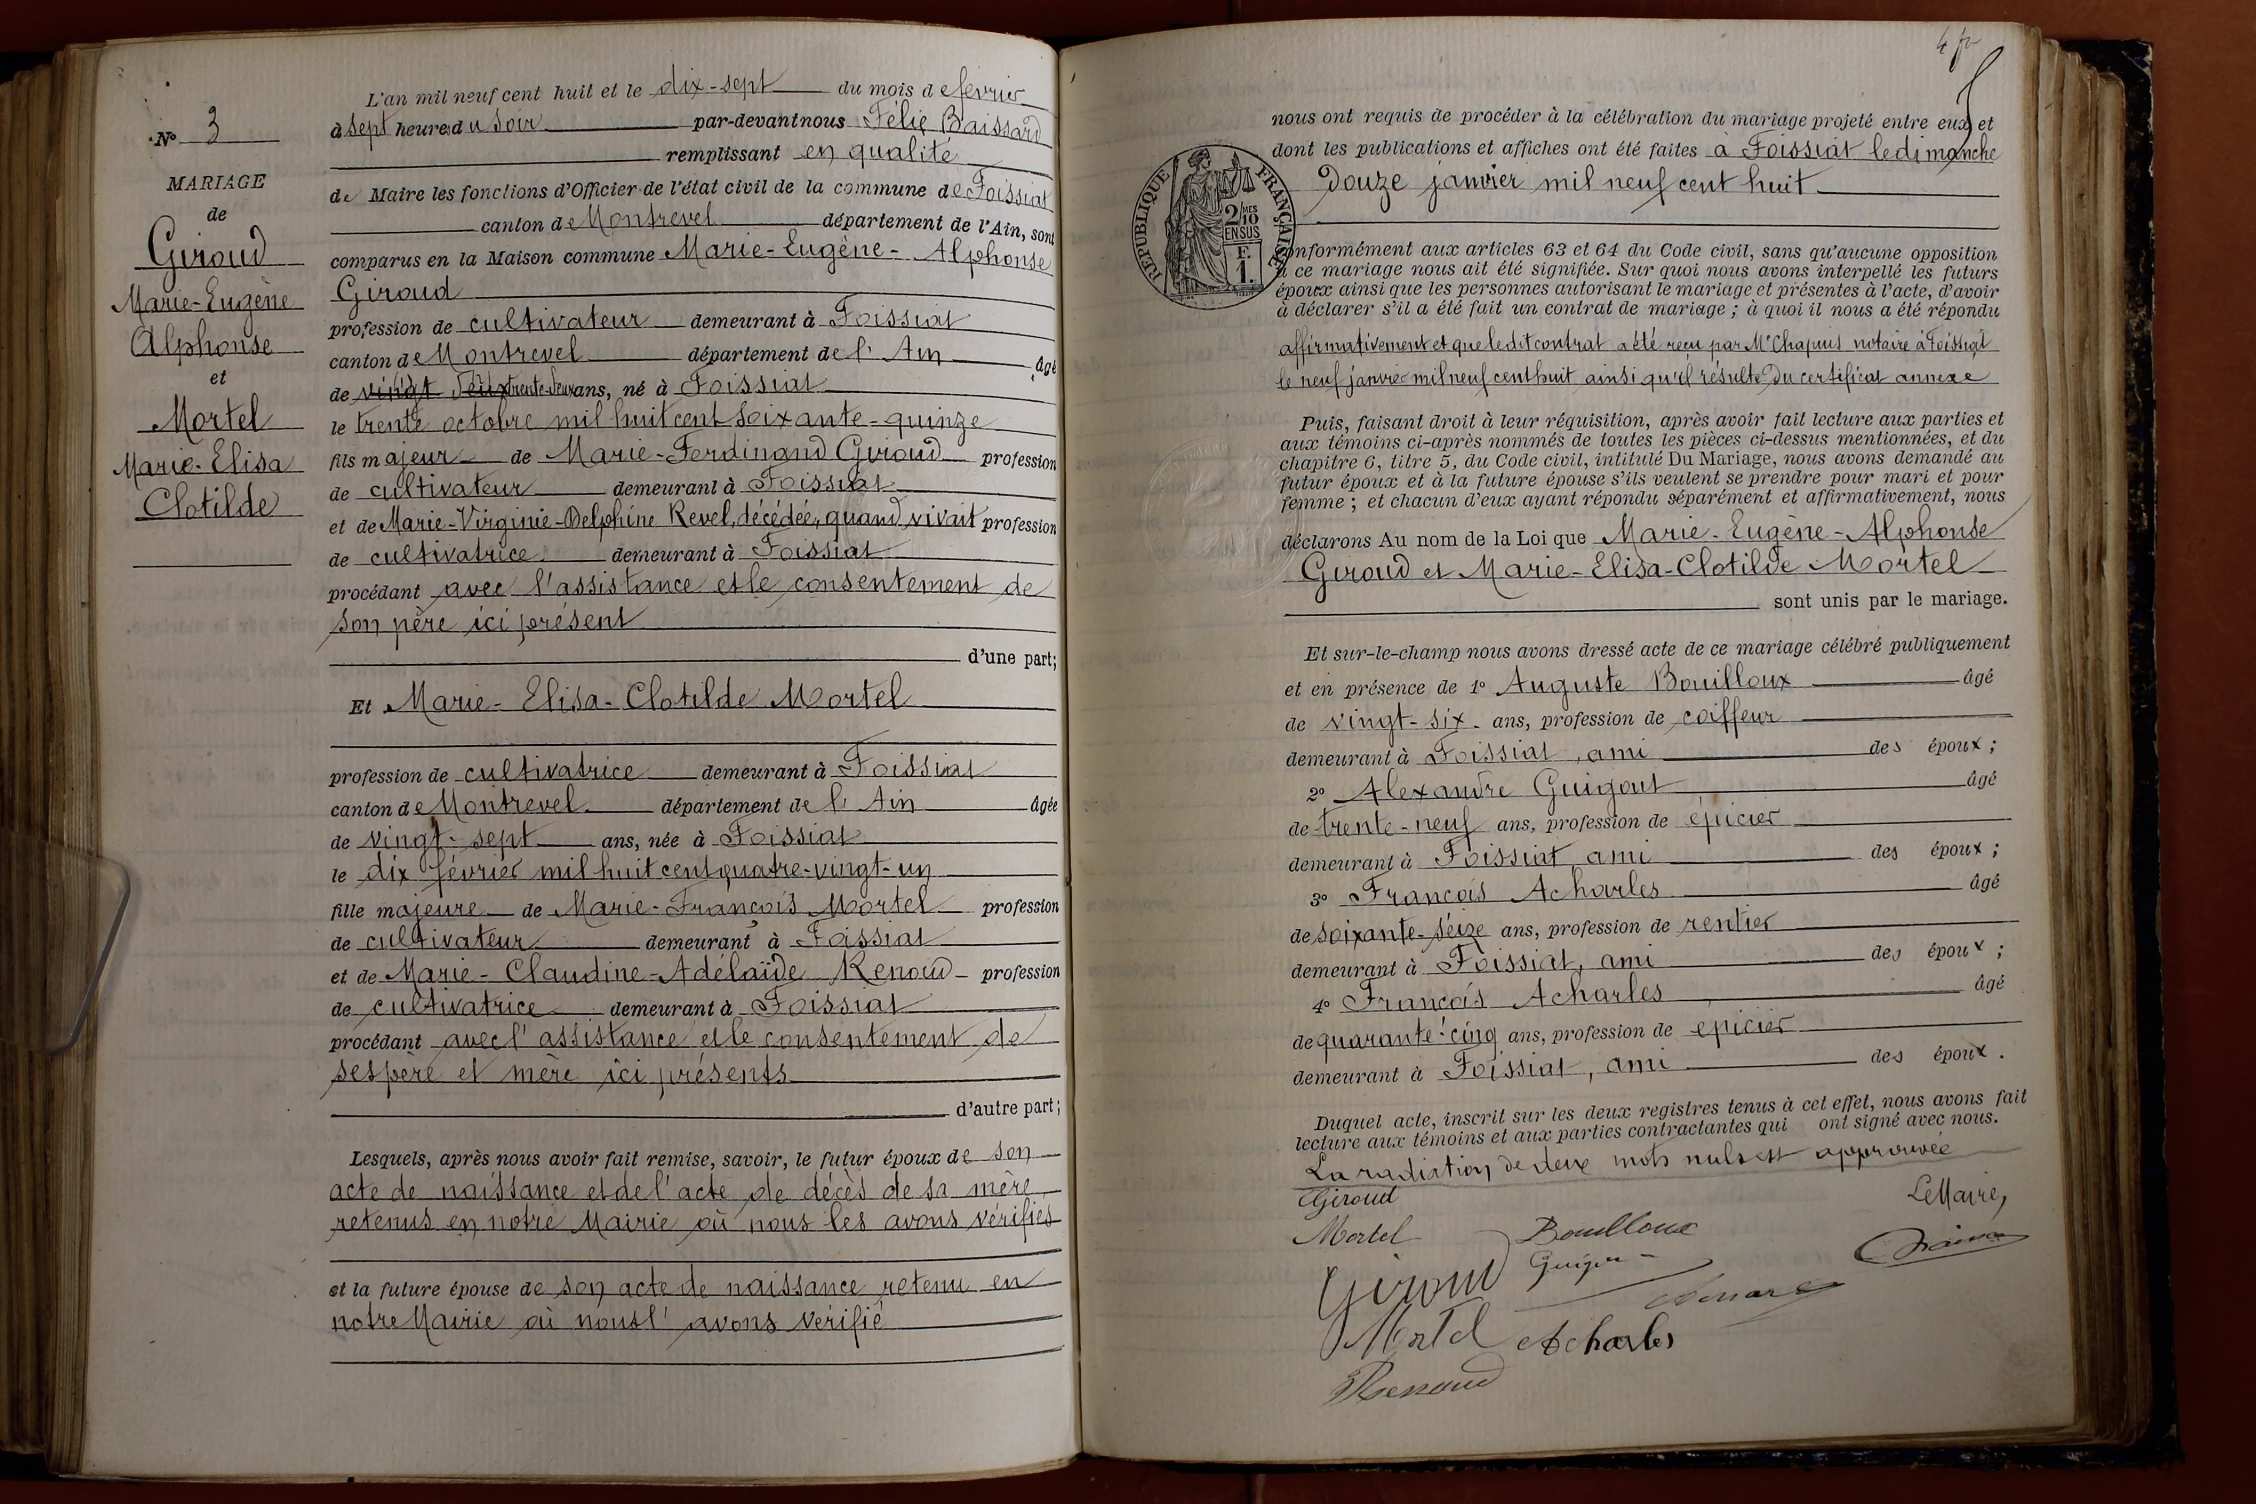 L'an mil neuf cent huit et le dix-sept du mois de février
à sept heures du soir par-devant nous Félix Baissard
remplissant en qualité
de Maire les fonctions d'Officier de l'état civil de la commune de Foissiat
canton de Montrevel département de l'Ain, sont
comparus en la Maison commune Marie-Eugène-Alphonse
Giroud
profession de cultivateur demeurant à Foissiat
canton de Montrevel département de l'Ain âgé
de vingt deux trente-deux ans, né à Foissiat
le trente octobre mil huit cent soixante-quinze
fils majeur de Marie-Ferdinand Giroud profession
de cultivateur demeurant à Foissiat
et de Marie-Virginie-Delphine Revel, décédée, quand vivait profession
de cultivatrice demeurant à Foissiat
procédant avec l'assistance et le consentement de
son père ici présent
d'une part;
Et Marie-Elisa-Clotilde Mortel
profession de cultivatrice demeurant à Foissiat
canton de Montrevel département de l'Ain âgée
de vingt-sept ans, née à Foissiat
le dix février mil huit cent quatre-vingt-un
fille majeure de Marie-François Mortel profession
de cultivateur demeurant à Foissiat
et de Marie-Claudine-Adélaïde Renoud profession
de cultivatrice demeurant à Foissiat
procédant avec l'assistance et le consentement de
ses père et mère ici présents
d'autre part;
Lesquels, après nous avoir fait remise, savoir, le futur époux de son
acte de naissance et de l'acte de décès de sa mère
retenus en notre Mairie où nous les avons vérifiés
et la future épouse de son acte de naissance retenu en
notre Mairie où nous l'avons vérifié
N° 3
MARIAGE
de
Giroud
Marie-Eugène
Alphonse
et
Mortel
Marie-Elisa
Clotilde
4 fr
nous ont requis de procéder à la célébration du mariage projeté entre eux et
dont les publications et affiches ont été faites à Foissiat le dimanche
douze janvier mil neuf cent huit
RÉPUBLIQUE FRANÇAISE
2/10
EN SUS
F.
1.
conformément aux articles 63 et 64 du Code civil, sans qu'aucune opposition
à ce mariage nous ait été signifiée. Sur quoi nous avons interpellé les futurs
époux ainsi que les personnes autorisant le mariage et présentes à l'acte, d'avoir
à déclarer s'il a été fait un contrat de mariage; à quoi il nous a été répondu
affirmativement et que ledit contrat a été reçu par Me Chapuis notaire à Foissiat
le neuf janvier mil neuf cent huit ainsi qu'il résulte du certificat annexé
Puis, faisant droit à leur réquisition, après avoir fait lecture aux parties et
aux témoins ci-après nommés de toutes les pièces ci-dessus mentionnées, et du
chapitre 6, titre 5, du Code civil, intitulé Du Mariage, nous avons demandé au
futur époux et à la future épouse s'ils veulent se prendre pour mari et pour
femme; et chacun d'eux ayant répondu séparément et affirmativement, nous
déclarons Au nom de la Loi que Marie-Eugène-Alphonse
Giroud et Marie-Elisa-Clotilde Mortel
sont unis par le mariage.
Et sur-le-champ nous avons dressé acte de ce mariage célébré publiquement
et en présence de 1° Auguste Bouilloux âgé
de vingt-six ans, profession de coiffeur
demeurant à Foissiat, ami des époux;
2° Alexandre Guigout âgé
de trente-neuf ans, profession de épicier
demeurant à Foissiat, ami des époux;
3° François Acharles âgé
de soixante-seize ans, profession de rentier
demeurant à Foissiat, ami des époux;
4° François Acharles âgé
de quarante-cinq ans, profession de épicier
demeurant à Foissiat, ami des époux.
Duquel acte, inscrit sur les deux registres tenus à cet effet, nous avons fait
lecture aux témoins et aux parties contractantes qui ont signé avec nous.
La radiation de deux mots nuls est approuvée
Giroud
Le Maire,
Mortel
Bouilloux
Giroud
Mortel
Acharles
Renoud